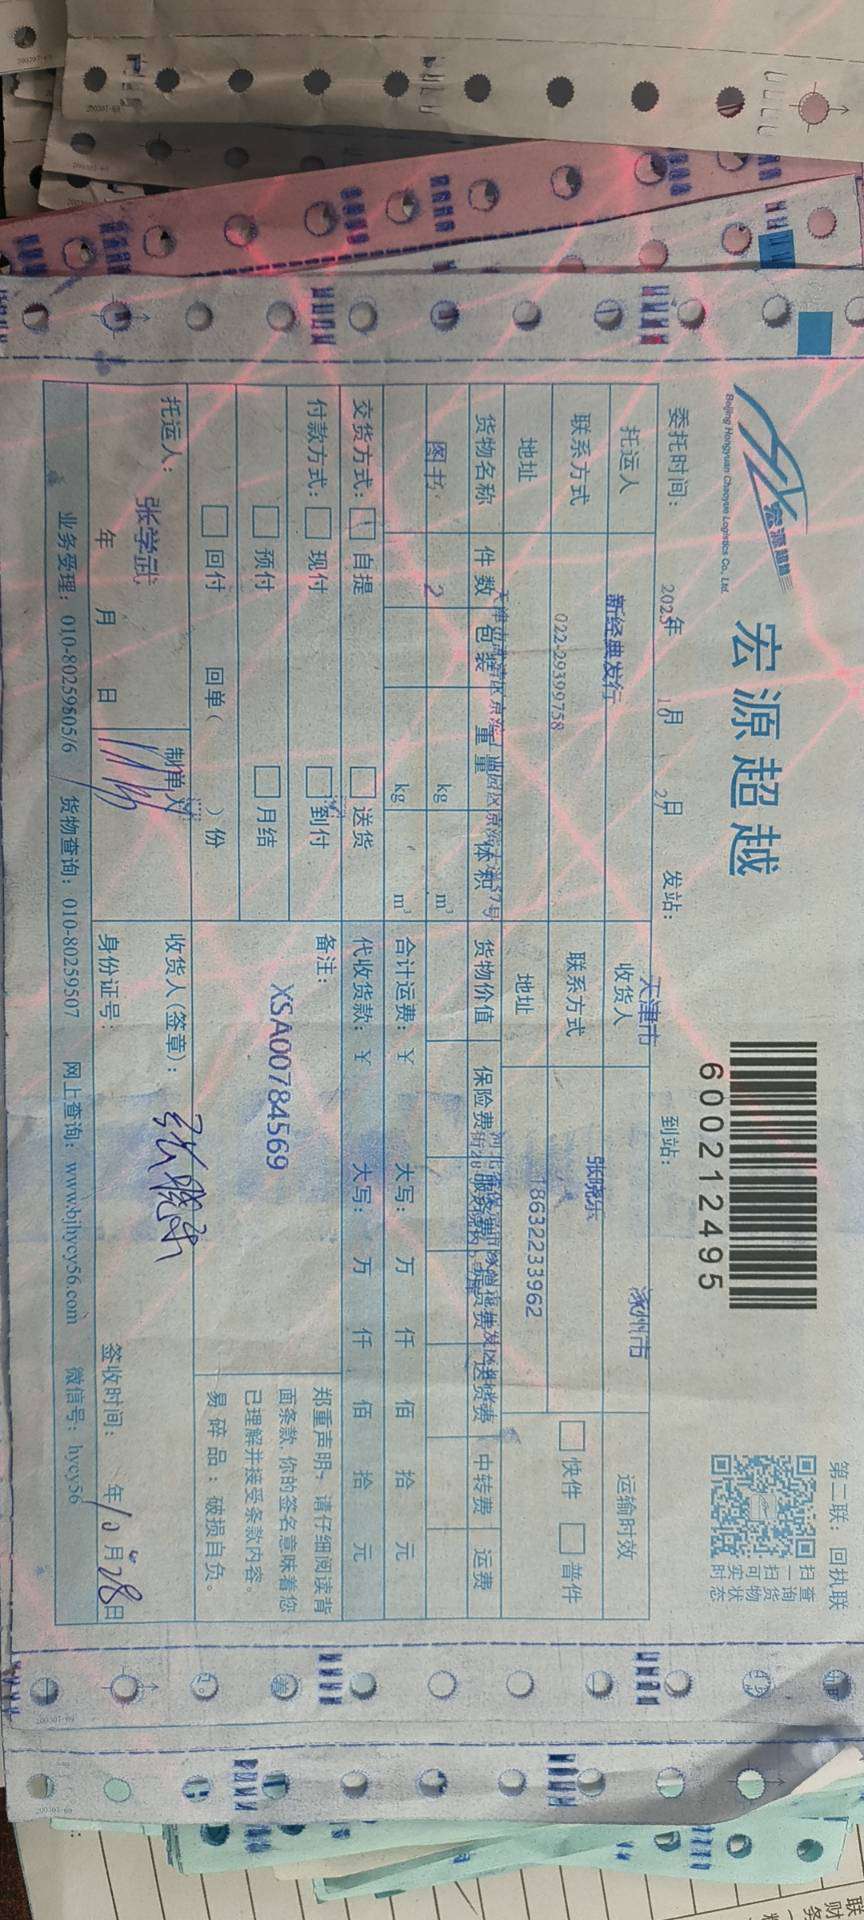 宏源超越
Beijing Hongyuan Chaoyue Logistics Co., Ltd.
宏源超越
600212495
第二联：回执联
扫一扫可实时
查询货物状态
委托时间： 2025年 10月 27日 发站： 天津市 到站： 涿州市
托运人 新经典发行 收货人 张晓乐 运输时效
联系方式 022-29399758 联系方式 18632233962 快件 普件
地址 地址
货物名称 件数 包装 重量 体积 货物价值 保险费 服务费 送货费 中转费 运费
图书 2 kg m³
kg m³ 合计运费：￥ 大写： 万 仟 佰 拾 元
交货方式： 自提 送货 代收货款：￥ 大写： 万 仟 佰 拾 元
付款方式： 现付 到付 备注：
预付 月结 XSA00784569
回付 回单（ ）份
郑重声明，请仔细阅读背
面条款，你的签名意味着您
已理解并接受条款内容。
易碎品：破损自负。
托运人： 张学武 制单人 收货人(签章)：
年 月 日 身份证号： 签收时间： 年10月28日
业务受理：010-80259505/6 货物查询：010-80259507 网上查询：www.bjhycy56.com 微信号：hycy56